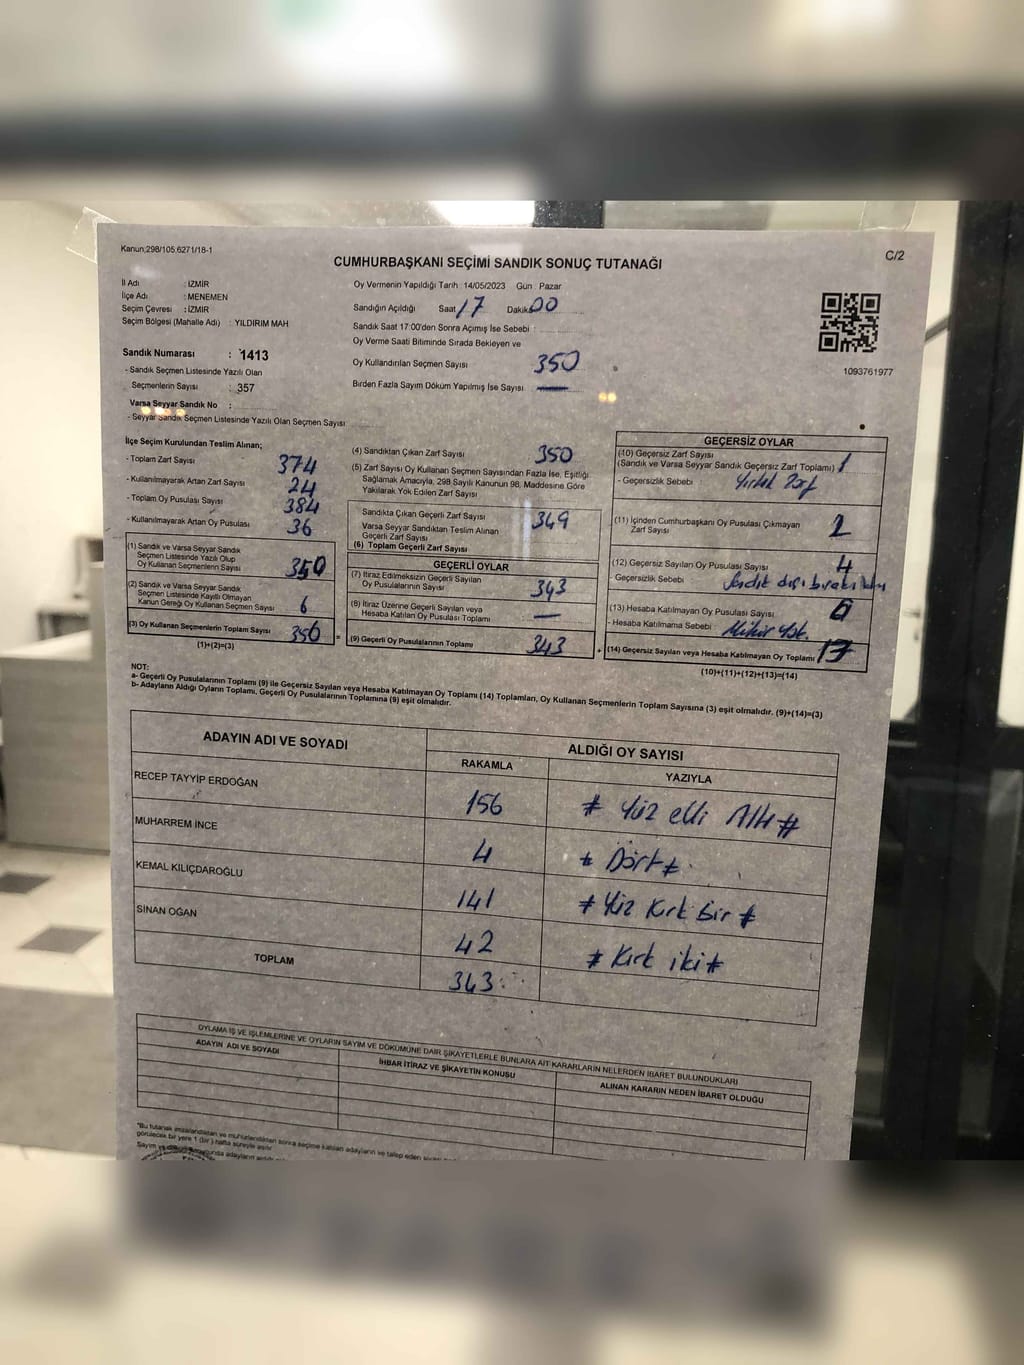 Kanun:298/105,6271/18-1
C/2
CUMHURBAŞKANI SEÇİMİ SANDIK SONUÇ TUTANAĞI
İl Adı : İZMİR
İlçe Adı : MENEMEN
Seçim Çevresi : İZMİR
Seçim Bölgesi (Mahalle Adı) : YILDIRIM MAH
Sandık Numarası : 1413
- Sandık Seçmen Listesinde Yazılı Olan
Seçmenlerin Sayısı : 357
Varsa Seyyar Sandık No :
- Seyyar Sandık Seçmen Listesinde Yazılı Olan Seçmen Sayısı
Oy Vermenin Yapıldığı Tarih :14/05/2023 Gün : Pazar
Sandığın Açıldığı Saat 17 Dakika 00
Sandık Saat 17:00'den Sonra Açımış İse Sebebi :
Oy Verme Saati Bitiminde Sırada Bekleyen ve
Oy Kullandırılan Seçmen Sayısı 350
Birden Fazla Sayım Döküm Yapılmış İse Sayısı
1093761977
İlçe Seçim Kurulundan Teslim Alınan;
- Toplam Zarf Sayısı 374
- Kullanılmayarak Artan Zarf Sayısı 24
- Toplam Oy Pusulası Sayısı 384
- Kullanılmayarak Artan Oy Pusulası 36
(1) Sandık ve Varsa Seyyar Sandık
Seçmen Listesinde Yazılı Olup
Oy Kullanan Seçmenlerin Sayısı 350
(2) Sandık ve Varsa Seyyar Sandık
Seçmen Listesinde Kayıtlı Olmayan
Kanun Gereği Oy Kullanan Seçmen Sayısı 6
(3) Oy Kullanan Seçmenlerin Toplam Sayısı 356 =
(1)+(2)=(3)
(4) Sandıktan Çıkan Zarf Sayısı 350
(5) Zarf Sayısı Oy Kullanan Seçmen Sayısından Fazla İse, Eşitliği
Sağlamak Amacıyla, 298 Sayılı Kanunun 98. Maddesine Göre
Yakılarak Yok Edilen Zarf Sayısı
Sandıkta Çıkan Geçerli Zarf Sayısı 349
Varsa Seyyar Sandıktan Teslim Alınan
Geçerli Zarf Sayısı
(6) Toplam Geçerli Zarf Sayısı
GEÇERLİ OYLAR
(7) İtiraz Edilmeksizin Geçerli Sayılan
Oy Pusulalarının Sayısı 343
(8) İtiraz Üzerine Geçerli Sayılan veya
Hesaba Katılan Oy Pusulası Toplamı
(9) Geçerli Oy Pusulalarının Toplamı 343 +
GEÇERSİZ OYLAR
(10) Geçersiz Zarf Sayısı
(Sandık ve Varsa Seyyar Sandık Geçersiz Zarf Toplamı) 1
- Geçersizlik Sebebi : Yırtık Zarf
(11) İçinden Cumhurbaşkanı Oy Pusulası Çıkmayan
Zarf Sayısı 2
(12) Geçersiz Sayılan Oy Pusulası Sayısı 4
Geçersizlik Sebebi
(13) Hesaba Katılmayan Oy Pusulası Sayısı
- Hesaba Katılmama Sebebi : Mühür yok.
(14) Geçersiz Sayılan veya Hesaba Katılmayan Oy Toplamı 13
(10)+(11)+(12)+(13)=(14)
NOT:
a- Geçerli Oy Pusulalarının Toplamı (9) ile Geçersiz Sayılan veya Hesaba Katılmayan Oy Toplamı (14) Toplamları, Oy Kullanan Seçmenlerin Toplam Sayısına (3) eşit olmalıdır. (9)+(14)=(3)
b- Adayların Aldığı Oyların Toplamı, Geçerli Oy Pusulalarının Toplamına (9) eşit olmalıdır.
ADAYIN ADI VE SOYADI ALDIĞI OY SAYISI
RAKAMLA YAZIYLA
RECEP TAYYİP ERDOĞAN 156 # Yüz elli Altı #
MUHARREM İNCE 4 # Dört #
KEMAL KILIÇDAROĞLU 141 # Yüz Kırk bir #
SİNAN OĞAN 42 # Kırk iki #
TOPLAM 343
OYLAMA İŞ VE İŞLEMLERİNE VE OYLARIN SAYIM VE DÖKÜMÜNE DAİR ŞİKAYETLERLE BUNLARA AİT KARARLARIN NELERDEN İBARET BULUNDUKLARI
ADAYIN ADI VE SOYADI İHBAR İTİRAZ VE ŞİKAYETİN KONUSU ALINAN KARARIN NEDEN İBARET OLDUĞU
"Bu tutanak imzalandıktan ve mühürlendikten sonra seçime katılan adayların ve talep eden
görülecek bir yere 1 (bir) hafta süreyle asılır